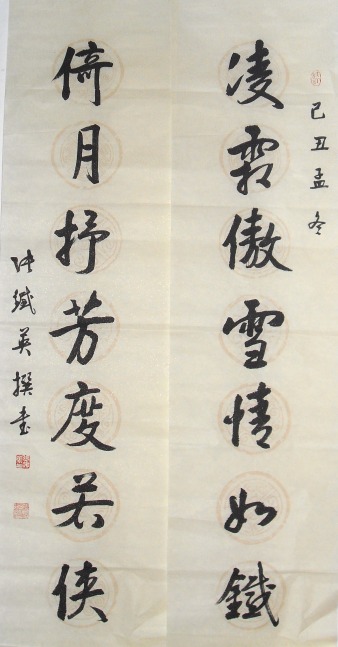 己丑孟冬
凌霜傲雪情如鐵
倚月抒芳度若俠
張鐵英撰書